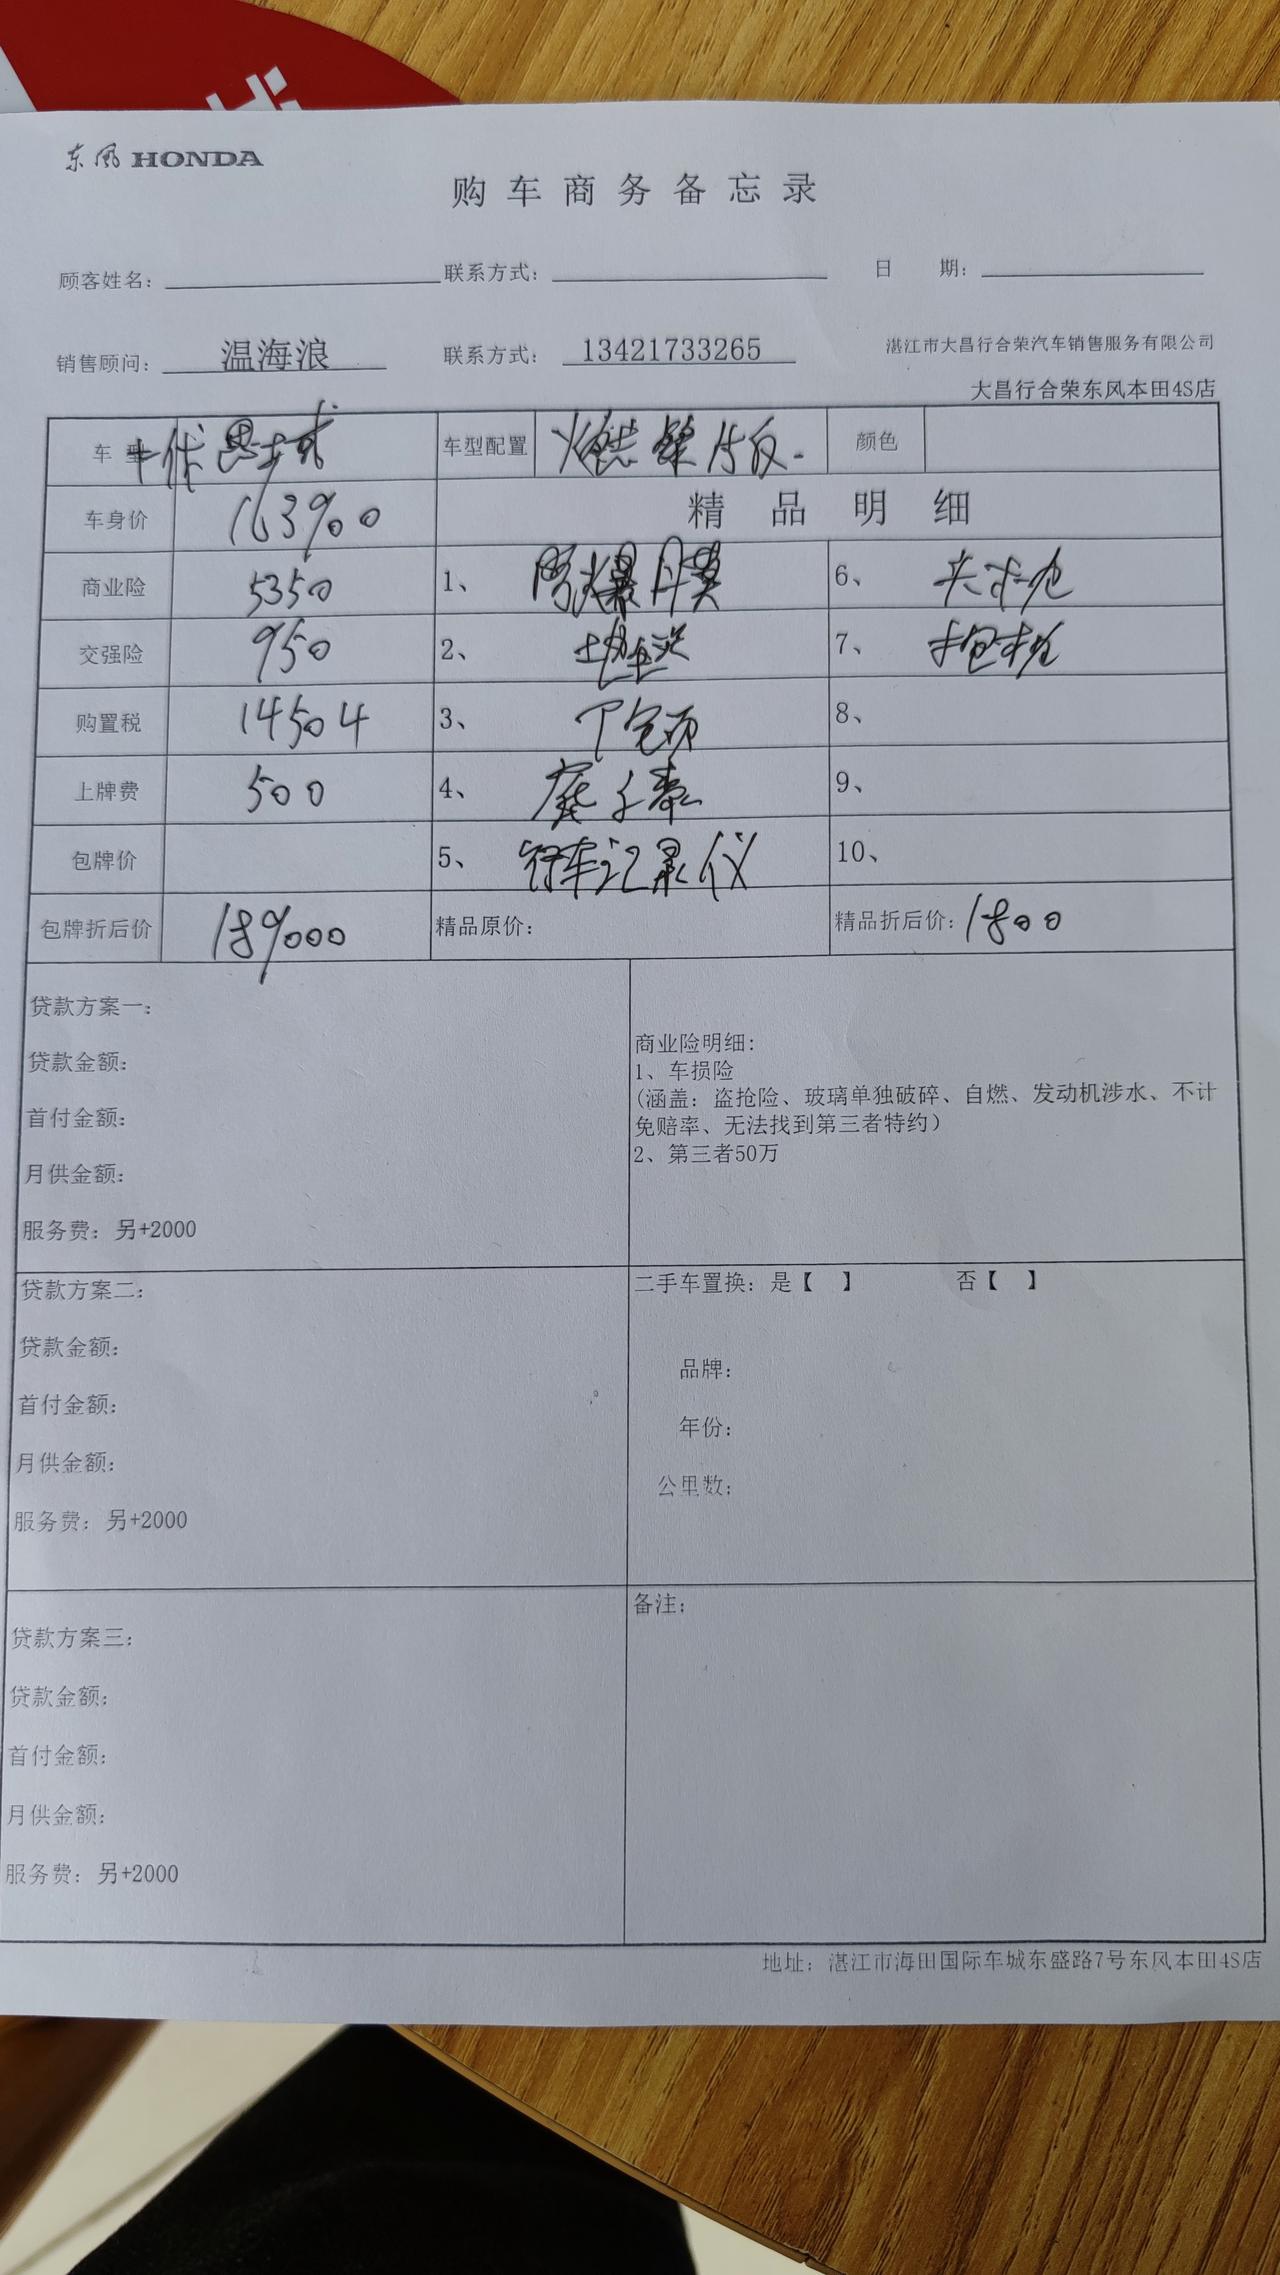 东风 HONDA
购车商务备忘录
顾客姓名： 联系方式： 日 期：
销售顾问： 温海浪 联系方式： 13421733265 湛江市大昌行合荣汽车销售服务有限公司
大昌行合荣东风本田4S店
车型 十一代思域 车型配置 颜色
车身价 163900 精品明细
商业险 5350 1、 防爆膜 6、 头枕
交强险 950 2、 地毯 7、 抱枕
购置税 14504 3、 8、
上牌费 500 4、 9、
包牌价 5、 行车记录仪 10、
包牌折后价 189000 精品原价： 精品折后价：1800
贷款方案一：
贷款金额：
首付金额：
月供金额：
服务费：另+2000
商业险明细：
1、车损险
(涵盖：盗抢险、玻璃单独破碎、自燃、发动机涉水、不计
免赔率、无法找到第三者特约）
2、第三者50万
贷款方案二：
贷款金额：
首付金额：
月供金额：
服务费：另+2000
二手车置换：是【 】 否【 】
品牌：
年份：
公里数：
贷款方案三：
贷款金额：
首付金额：
月供金额：
服务费：另+2000
备注：
地址：湛江市海田国际车城东盛路7号东风本田4S店